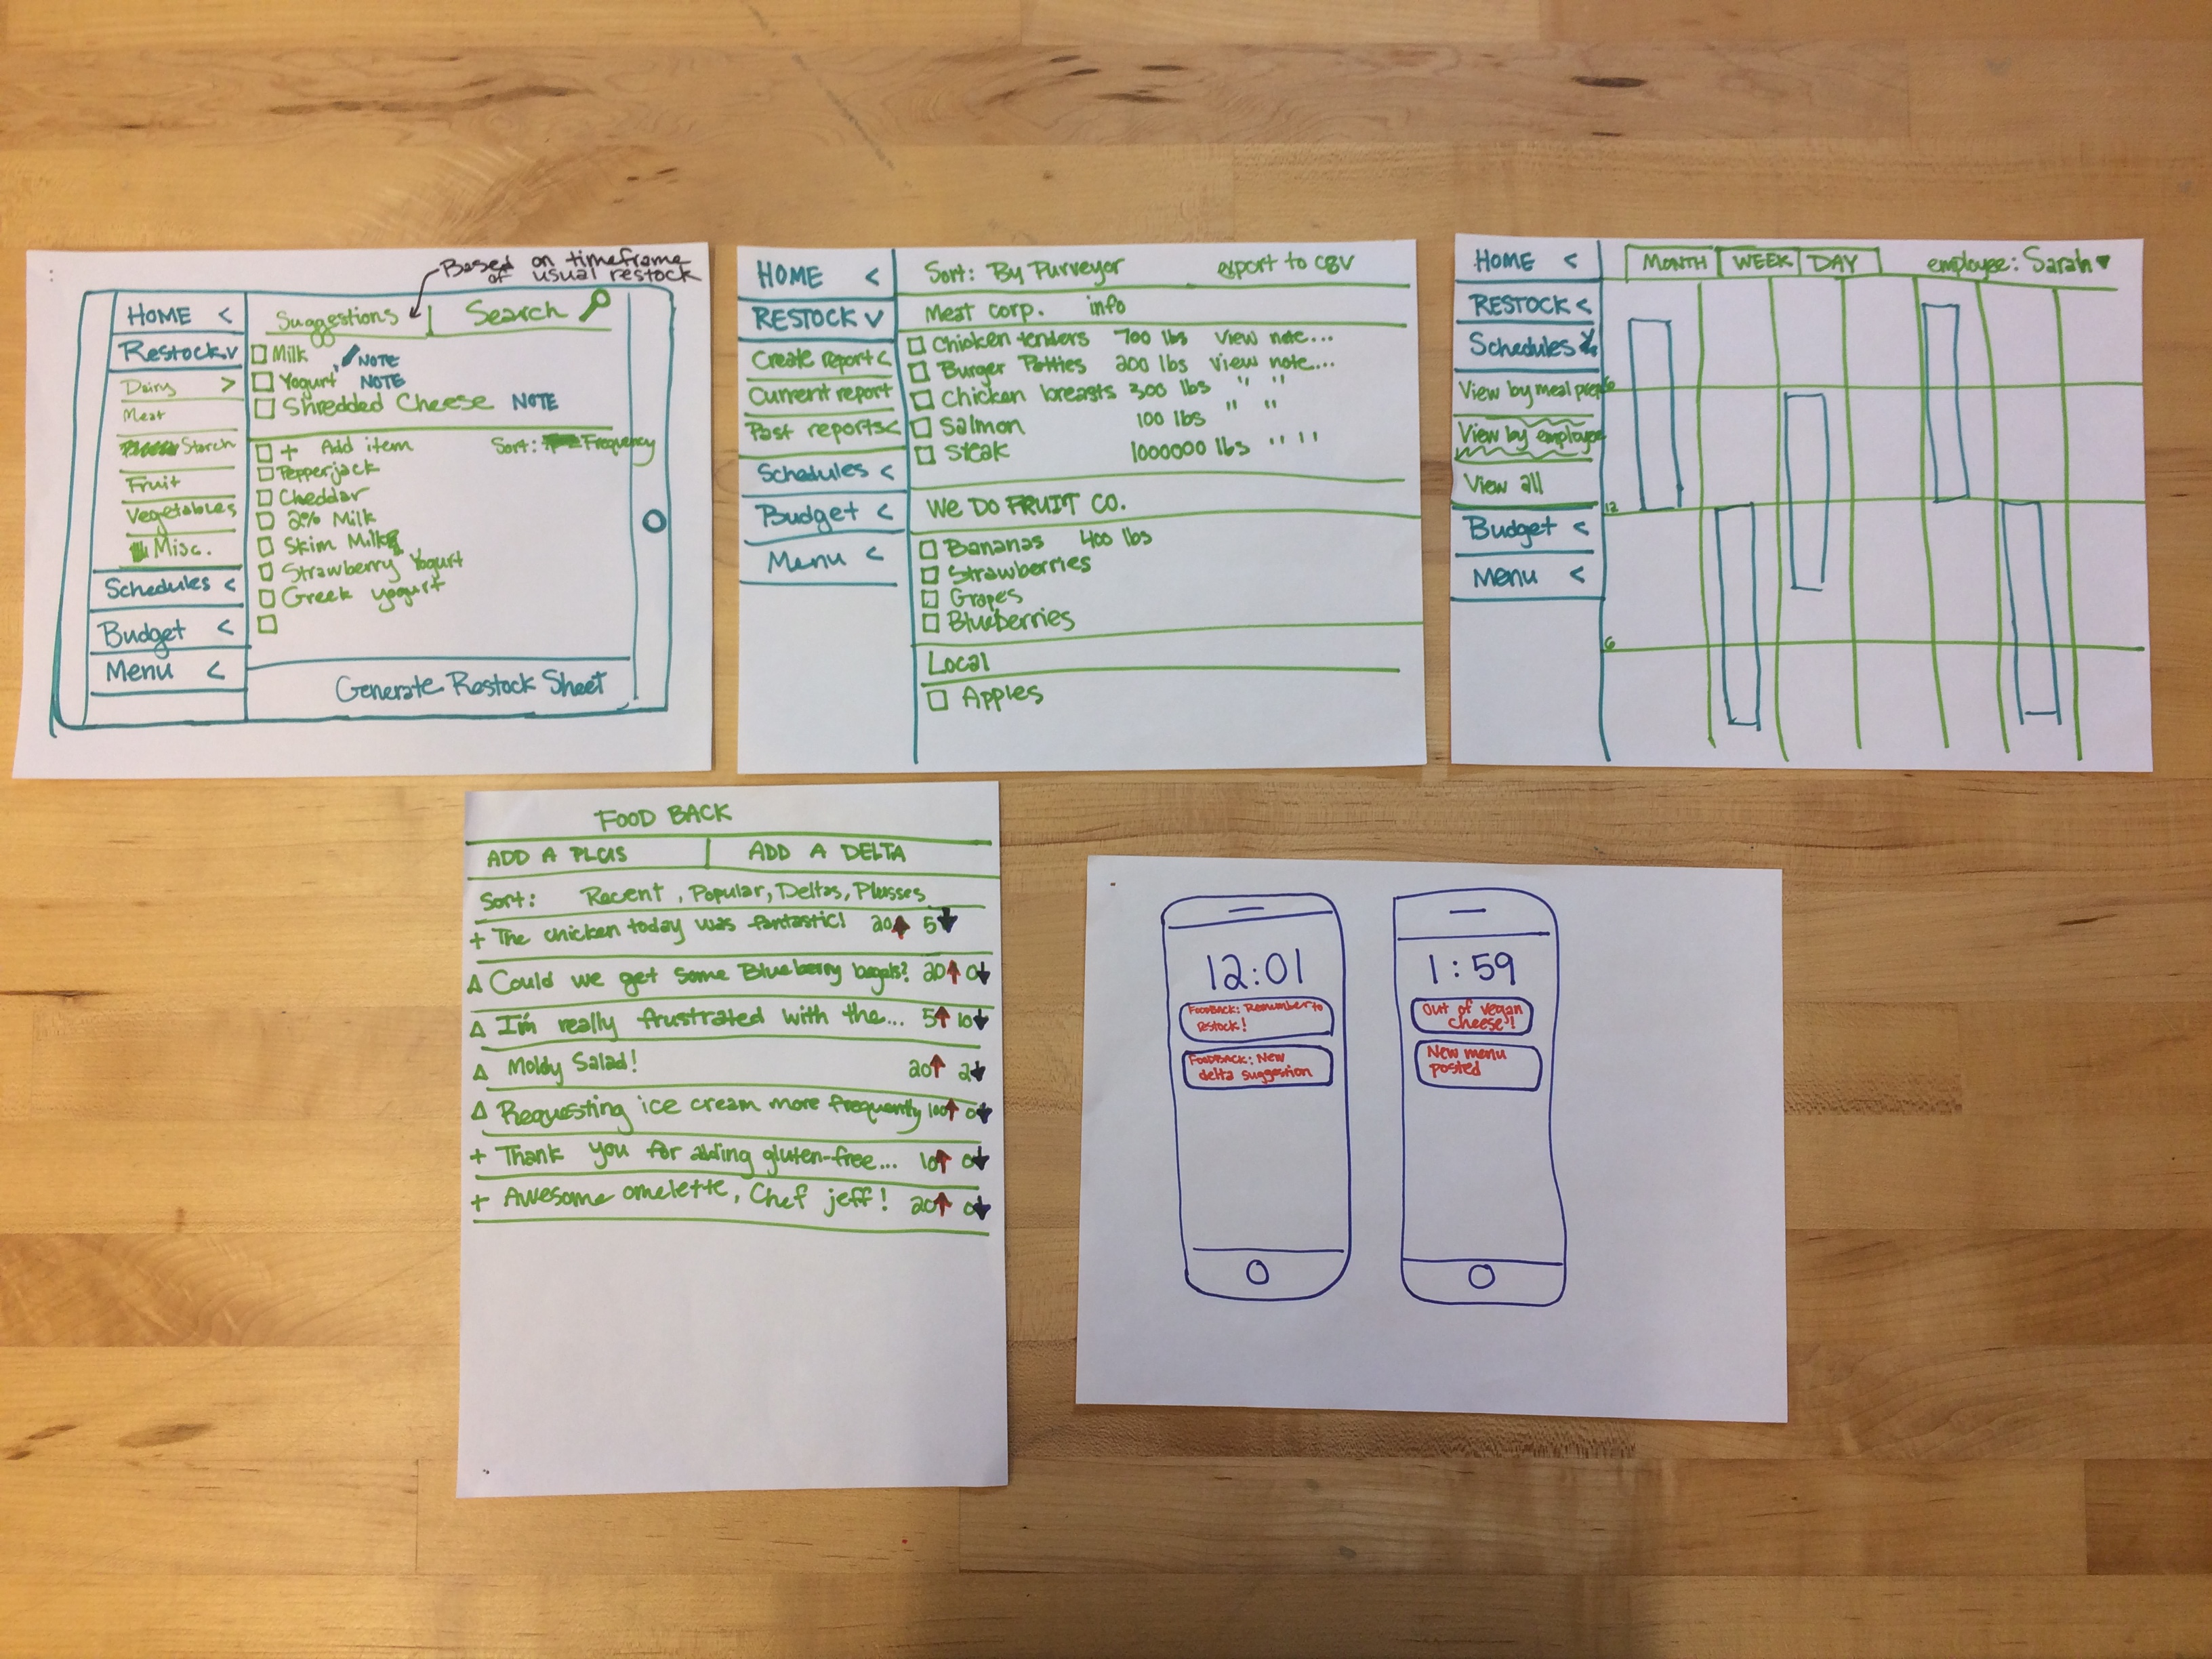 Based on timeframe
of usual restock
HOME <
Restock v
Dairy >
Meat
Starch
Fruit
Vegetables
Misc.
Schedules <
Budget <
Menu <
Suggestions
Search
Milk NOTE
Yogurt NOTE
Shredded Cheese NOTE
+ Add item Sort: Frequency
Pepperjack
Cheddar
2% Milk
Skim Milk
Strawberry Yogurt
Greek yogurt
Generate Restock Sheet
HOME <
RESTOCK v
Create report <
Current report
Past reports <
Schedules <
Budget <
Menu <
Sort: By Purveyor export to CSV
Meat corp. info
Chicken tenders 700 lbs View note...
Burger Patties 200 lbs View note...
Chicken breasts 300 lbs " "
Salmon 100 lbs " "
Steak 1000000 lbs " "
WE DO FRUIT CO.
Bananas 400 lbs
Strawberries
Grapes
Blueberries
Local
Apples
HOME <
RESTOCK <
Schedules
View by meal
View by employee
View all
Budget <
Menu <
MONTH WEEK DAY employee: Sarah
12
6
FOOD BACK
ADD A PLUS ADD A DELTA
Sort: Recent, Popular, Deltas, Plusses
+ The chicken today was fantastic! 20 ↑ 5 ↓
Δ Could we get some Blueberry bagels? 20 ↑ 0 ↓
Δ I'm really frustrated with the... 5 ↑ 10 ↓
Δ Moldy Salad! 20 ↑ 2 ↓
Δ Requesting ice cream more frequently 100 ↑ 0 ↓
+ Thank you for adding gluten-free... 10 ↑ 0 ↓
+ Awesome omelette, Chef jeff! 20 ↑ 0 ↓
12:01
FOODBACK: Remember to
restock!
FOODBACK: New
delta suggestion
1:59
Out of vegan
cheese!
New menu
posted